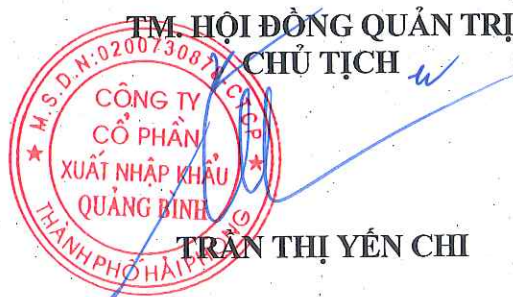 TM. HỘI ĐỒNG QUẢN TRỊ
CHỦ TỊCH
M.S.D.N:0200730878-C.T.C.P
CÔNG TY
CỔ PHẦN
XUẤT NHẬP KHẨU
QUẢNG BÌNH
THÀNH PHỐ HẢI PHÒNG
TRẦN THỊ YẾN CHI